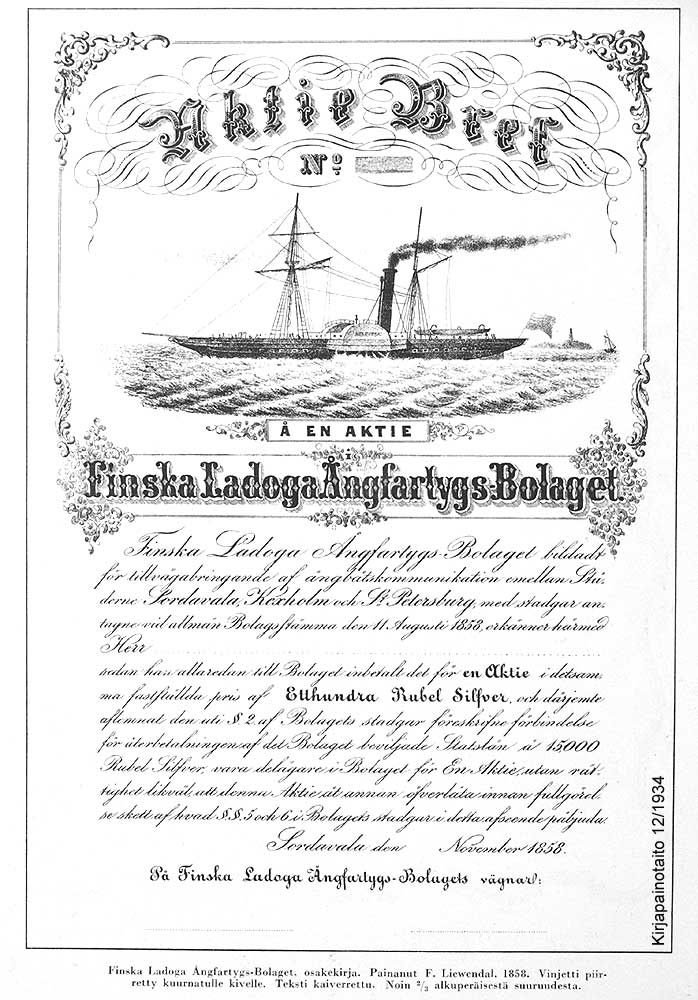 Aktie Bref
No
Å EN AKTIE
i
Finska Ladoga Ångfartygs Bolaget.
Finska Ladoga Ångfartygs-Bolaget bildadt
för tillvägabringande af ångbåtskommunikation emellan Stä-
derne Sordavala, Kexholm och St. Petersburg, med stadgar an-
tagne vid allmän Bolagsstämma den 11 Augusti 1858, erkänner härmed
Herr
sedan han allaredan till Bolaget inbetalt det för en Aktie i detsam-
ma fastställda pris af Etthundra Rubel Silfver, och därjemte
aflemnat den uti §. 2. af Bolagets stadgar föreskrifne förbindelse
för återbetalningen af det Bolaget beviljade Statslån à 15000
Rubel Silfver, vara delägare i Bolaget för En Aktie, utan rät-
tighet likväl att denna Aktie åt annan öfverlåta innan fullgörel-
se skett af hvad §.§. 5 och 6. i Bolagets stadgar i detta afseende påbjuda.
Sordavala den November 1858.
På Finska Ladoga Ångfartygs-Bolagets vägnar:
Kirjapainotaito 12/1934
Finska Ladoga Ångfartygs-Bolaget, osakekirja. Painanut F. Liewendal, 1858. Vinjetti piir-
retty kuurnatulle kivelle. Teksti kaiverrettu. Noin 2/3 alkuperäisestä suuruudesta.